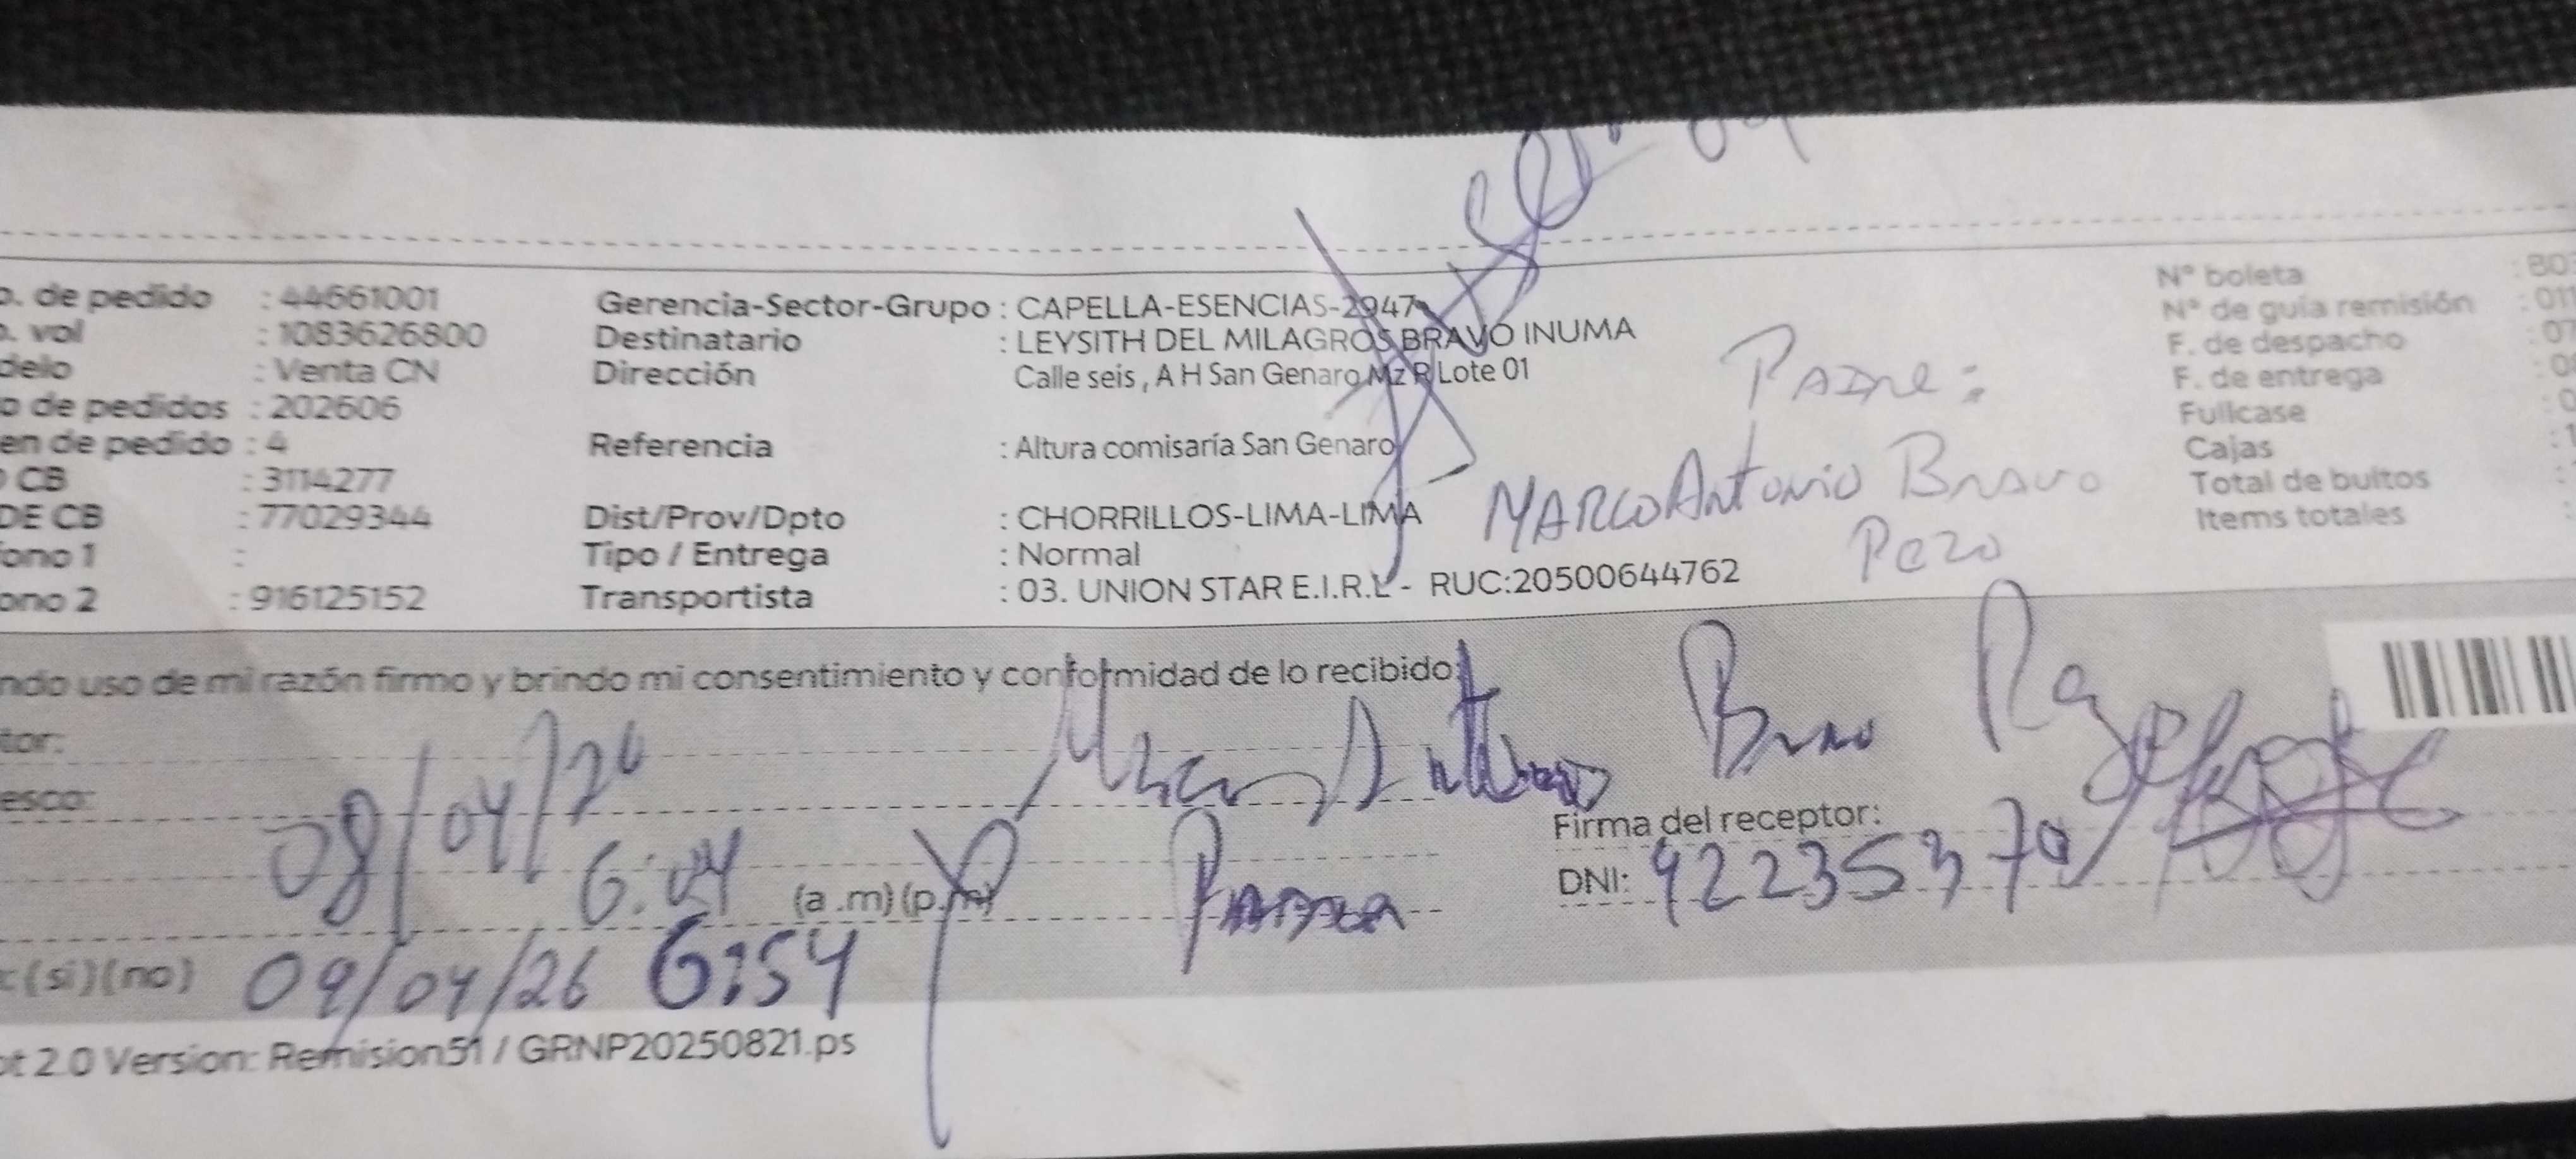 o. de pedido : 44661001
o. vol : 1083626800
delo : Venta CN
o de pedidos : 202606
en de pedido : 4
O CB : 3114277
DE CB : 77029344
ono 1 :
ono 2 : 916125152
Gerencia-Sector-Grupo : CAPELLA-ESENCIAS-2947
Destinatario : LEYSITH DEL MILAGROS BRAVO INUMA
Dirección Calle seis , A H San Genaro Mz R Lote 01
Referencia : Altura comisaría San Genaro
Dist/Prov/Dpto : CHORRILLOS-LIMA-LIMA
Tipo / Entrega : Normal
Transportista : 03. UNION STAR E.I.R.L - RUC:20500644762
Padre:
MARCO Antonio Bravo
Pezo
N° boleta : B03
N° de guía remisión : 011
F. de despacho : 07
F. de entrega : 0
Fullcase : 0
Cajas : 1
Total de bultos :
Items totales :
ndo uso de mi razón firmo y brindo mi consentimiento y conformidad de lo recibido:
tor:
esco:
08/04/26
6:04 (a .m) (p.m)
Antonio Bravo
Firma del receptor:
DNI: 42235370
: (si) (no) 09/04/26 6:54
ot 2.0 Version: Remision51 / GRNP20250821.ps